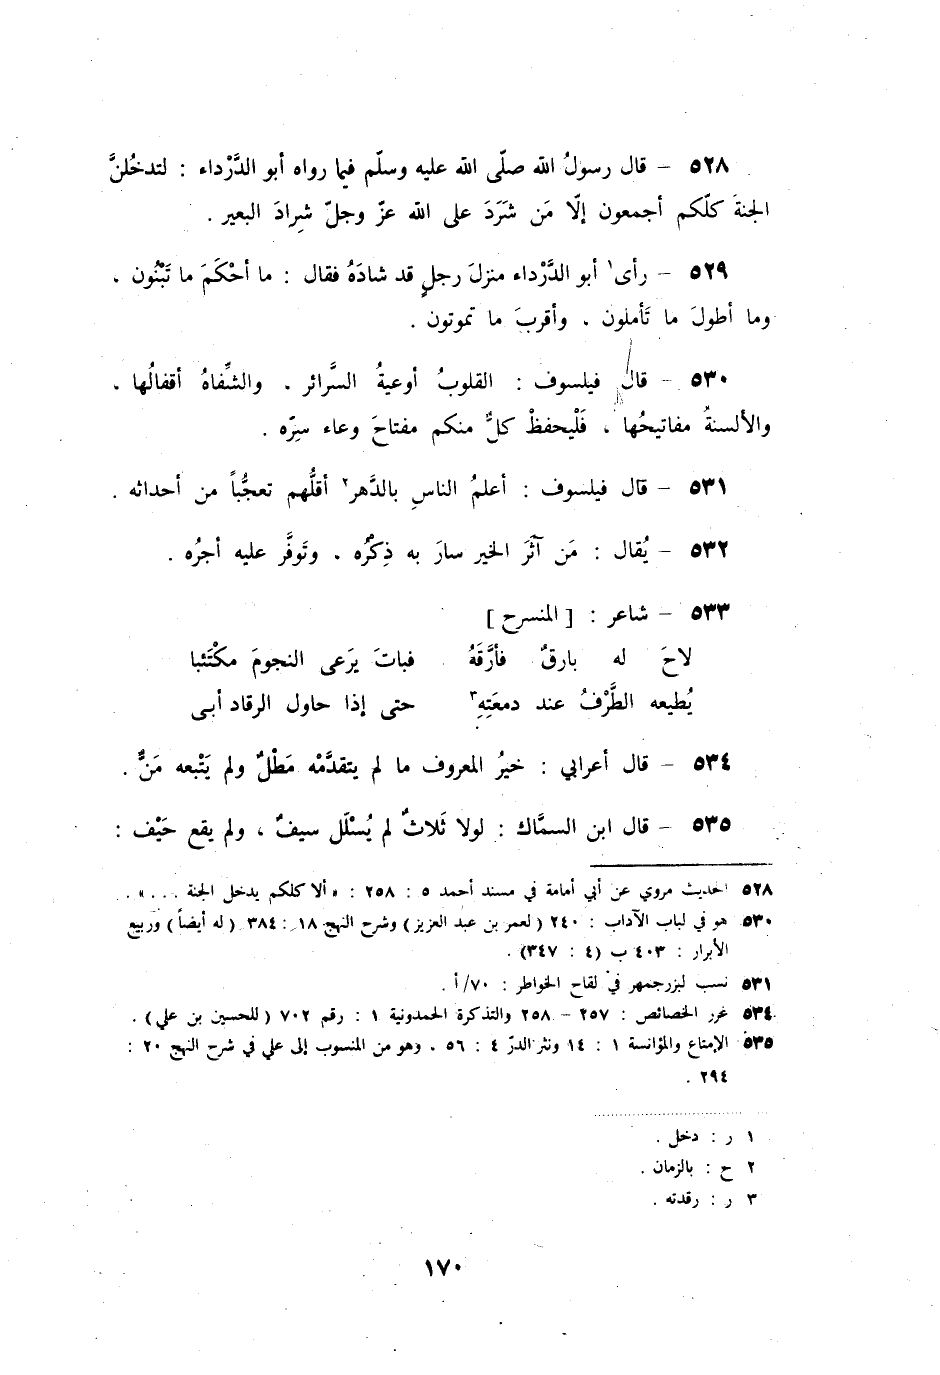 ٥٢٨ – قال رسولُ الله صلّى الله عليه وسلّم فيما رواه أبو الدَّرْداء : لتدخُلنَّ
الجنةَ كلّكم أجمعون إلّا مَن شَرَدَ على الله عزّ وجلّ شِرادَ البعير .
٥٢٩ – رأى١ أبو الدَّرْداء منزلَ رجلٍ قد شادَهُ فقال : ما أحْكَمَ ما تَبْنُون ،
وما أطولَ ما تَأملون ، وأقربَ ما تموتون .
٥٣٠ – قال فيلسوف : القلوبُ أوعيةُ السَّرائر ، والشِّفاهُ أقفالُها ،
والألسنةُ مفاتيحُها ، فَلْيحفظْ كلٌّ منكم مفتاحَ وعاء سِرّه .
٥٣١ – قال فيلسوف : أعلمُ الناسِ بالدَّهر٢ أقلُّهم تعجُّباً من أحداثه .
٥٣٢ – يُقال : مَن آثَرَ الخير سارَ به ذِكْرُه ، وتَوفَّر عليه أجرُه .
٥٣٣ – شاعر : [ المنسرح ]
لاحَ له بارقٌ فأرَّقَهُ فباتَ يَرَعى النجومَ مكْتَئبا
يُطيعه الطَّرْفُ عند دمعَتِهِ٣ حتى إذا حاول الرقاد أبى
٥٣٤ – قال أعرابي : خيرُ المعروف ما لم يتقدَّمْه مَطْلٌ ولم يَتْبعه مَنٌّ .
٥٣٥ – قال ابن السمَّاك : لولا ثَلاثٌ لم يُسْلَل سيفٌ ، ولم يقع حَيْف :
٥٢٨ الحديث مروي عن أبي أمامة في مسند أحمد ٥ : ٢٥٨ : « ألا كلكم يدخل الجنة . . . » .
٥٣٠ هو في لباب الآداب : ٢٤٠ ( لعمر بن عبد العزيز ) وشرح النهج ١٨ : ٣٨٤ ( له أيضاً ) وربيع
الأبرار : ٤٠٣ ب (٤ : ٣٤٧) .
٥٣١ نسب لبزرجمهر في لقاح الخواطر : ٧٠/أ .
٥٣٤ غرر الخصائص : ٢٥٧ – ٢٥٨ والتذكرة الحمدونية ١ : رقم ٧٠٢ ( للحسين بن علي ) .
٥٣٥ الإمتاع والمؤانسة ١ : ١٤ ونثر الدرّ ٤ : ٥٦ ، وهو من المنسوب إلى علي في شرح النهج ٢٠ :
٢٩٤ .
١ ر : دخل .
٢ ح : بالزمان .
٣ ر : رقدته .
١٧٠